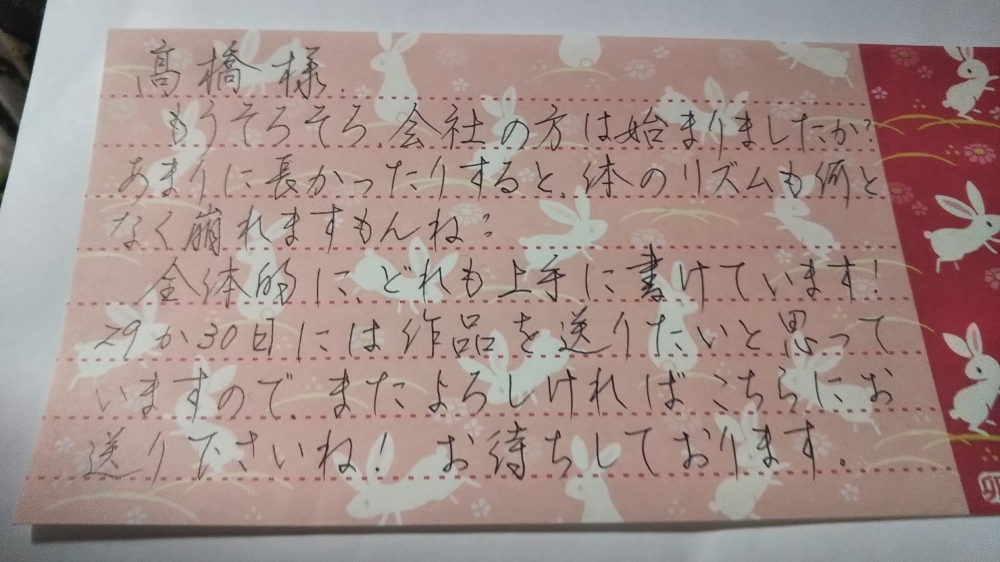 高橋様、
もうそろそろ、会社の方は始まりましたか?
あまりに長かったりすると、体のリズムも何と
なく崩れますもんね?
全体的に、どれも上手に書けています!
29か30日には作品を送りたいと思って
いますので、またよろしければこちらにお
送り下さいね! お待ちしております。
卯